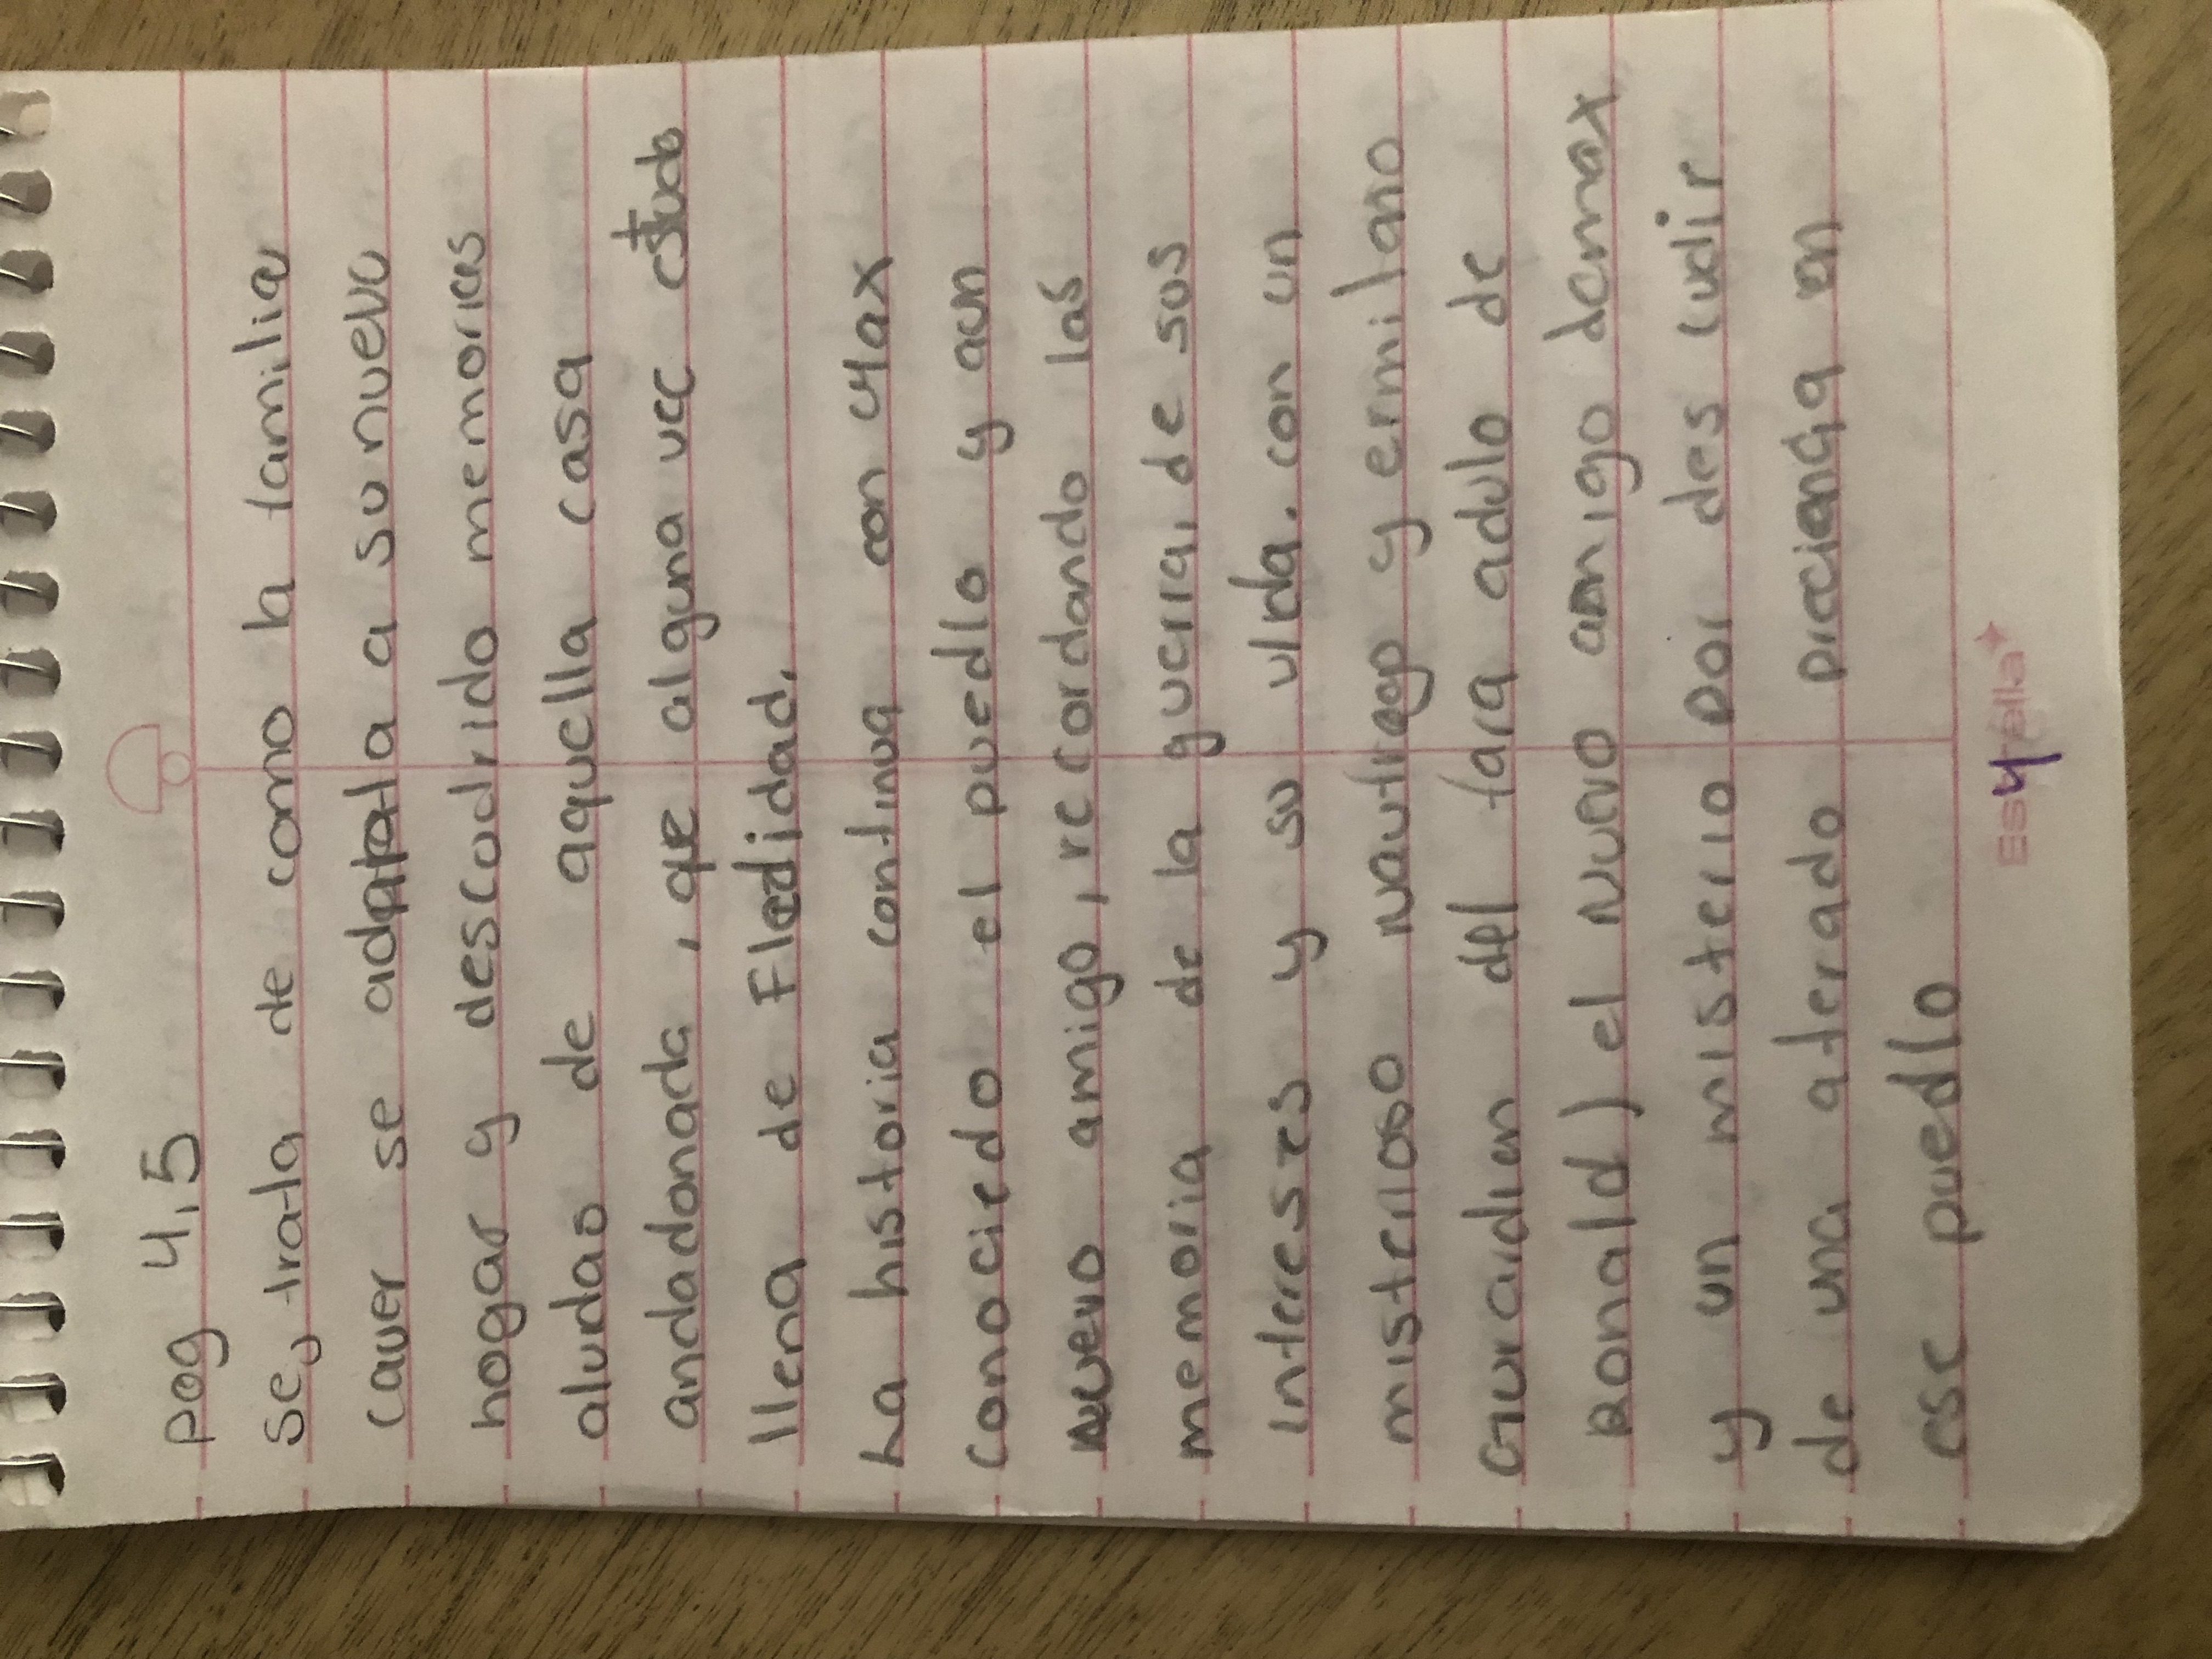 pag 4,5
se, trata de como la familia
caver se adapta a su nuevo
hogar y descudrido memorias
aludas de aquella casa
andadonada, que alguna vec estudo
llena de Fledidad.
La historia continua con Max
conociedo el puedlo y aun
nuevo amigo, recordando las
memoria de la guerra, de sus
intereses y su vida. con un
misterioso naufrago y ermilaño
Guardien del fara adulo de
Ronald) el nuevo amigo demax
y un misterio por des cudir
de una aterado preciencia en
ese puedlo
Estrella
4